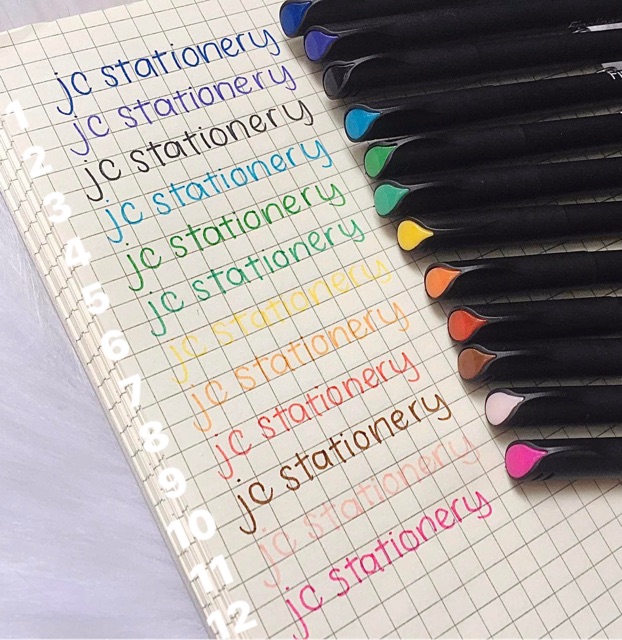 1 jc stationery
2 jc stationery
3 jc stationery
4 jc stationery
5 jc stationery
6 jc stationery
7 jc stationery
8 jc stationery
9 jc stationery
10 jc stationery
11 jc stationery
12 jc stationery